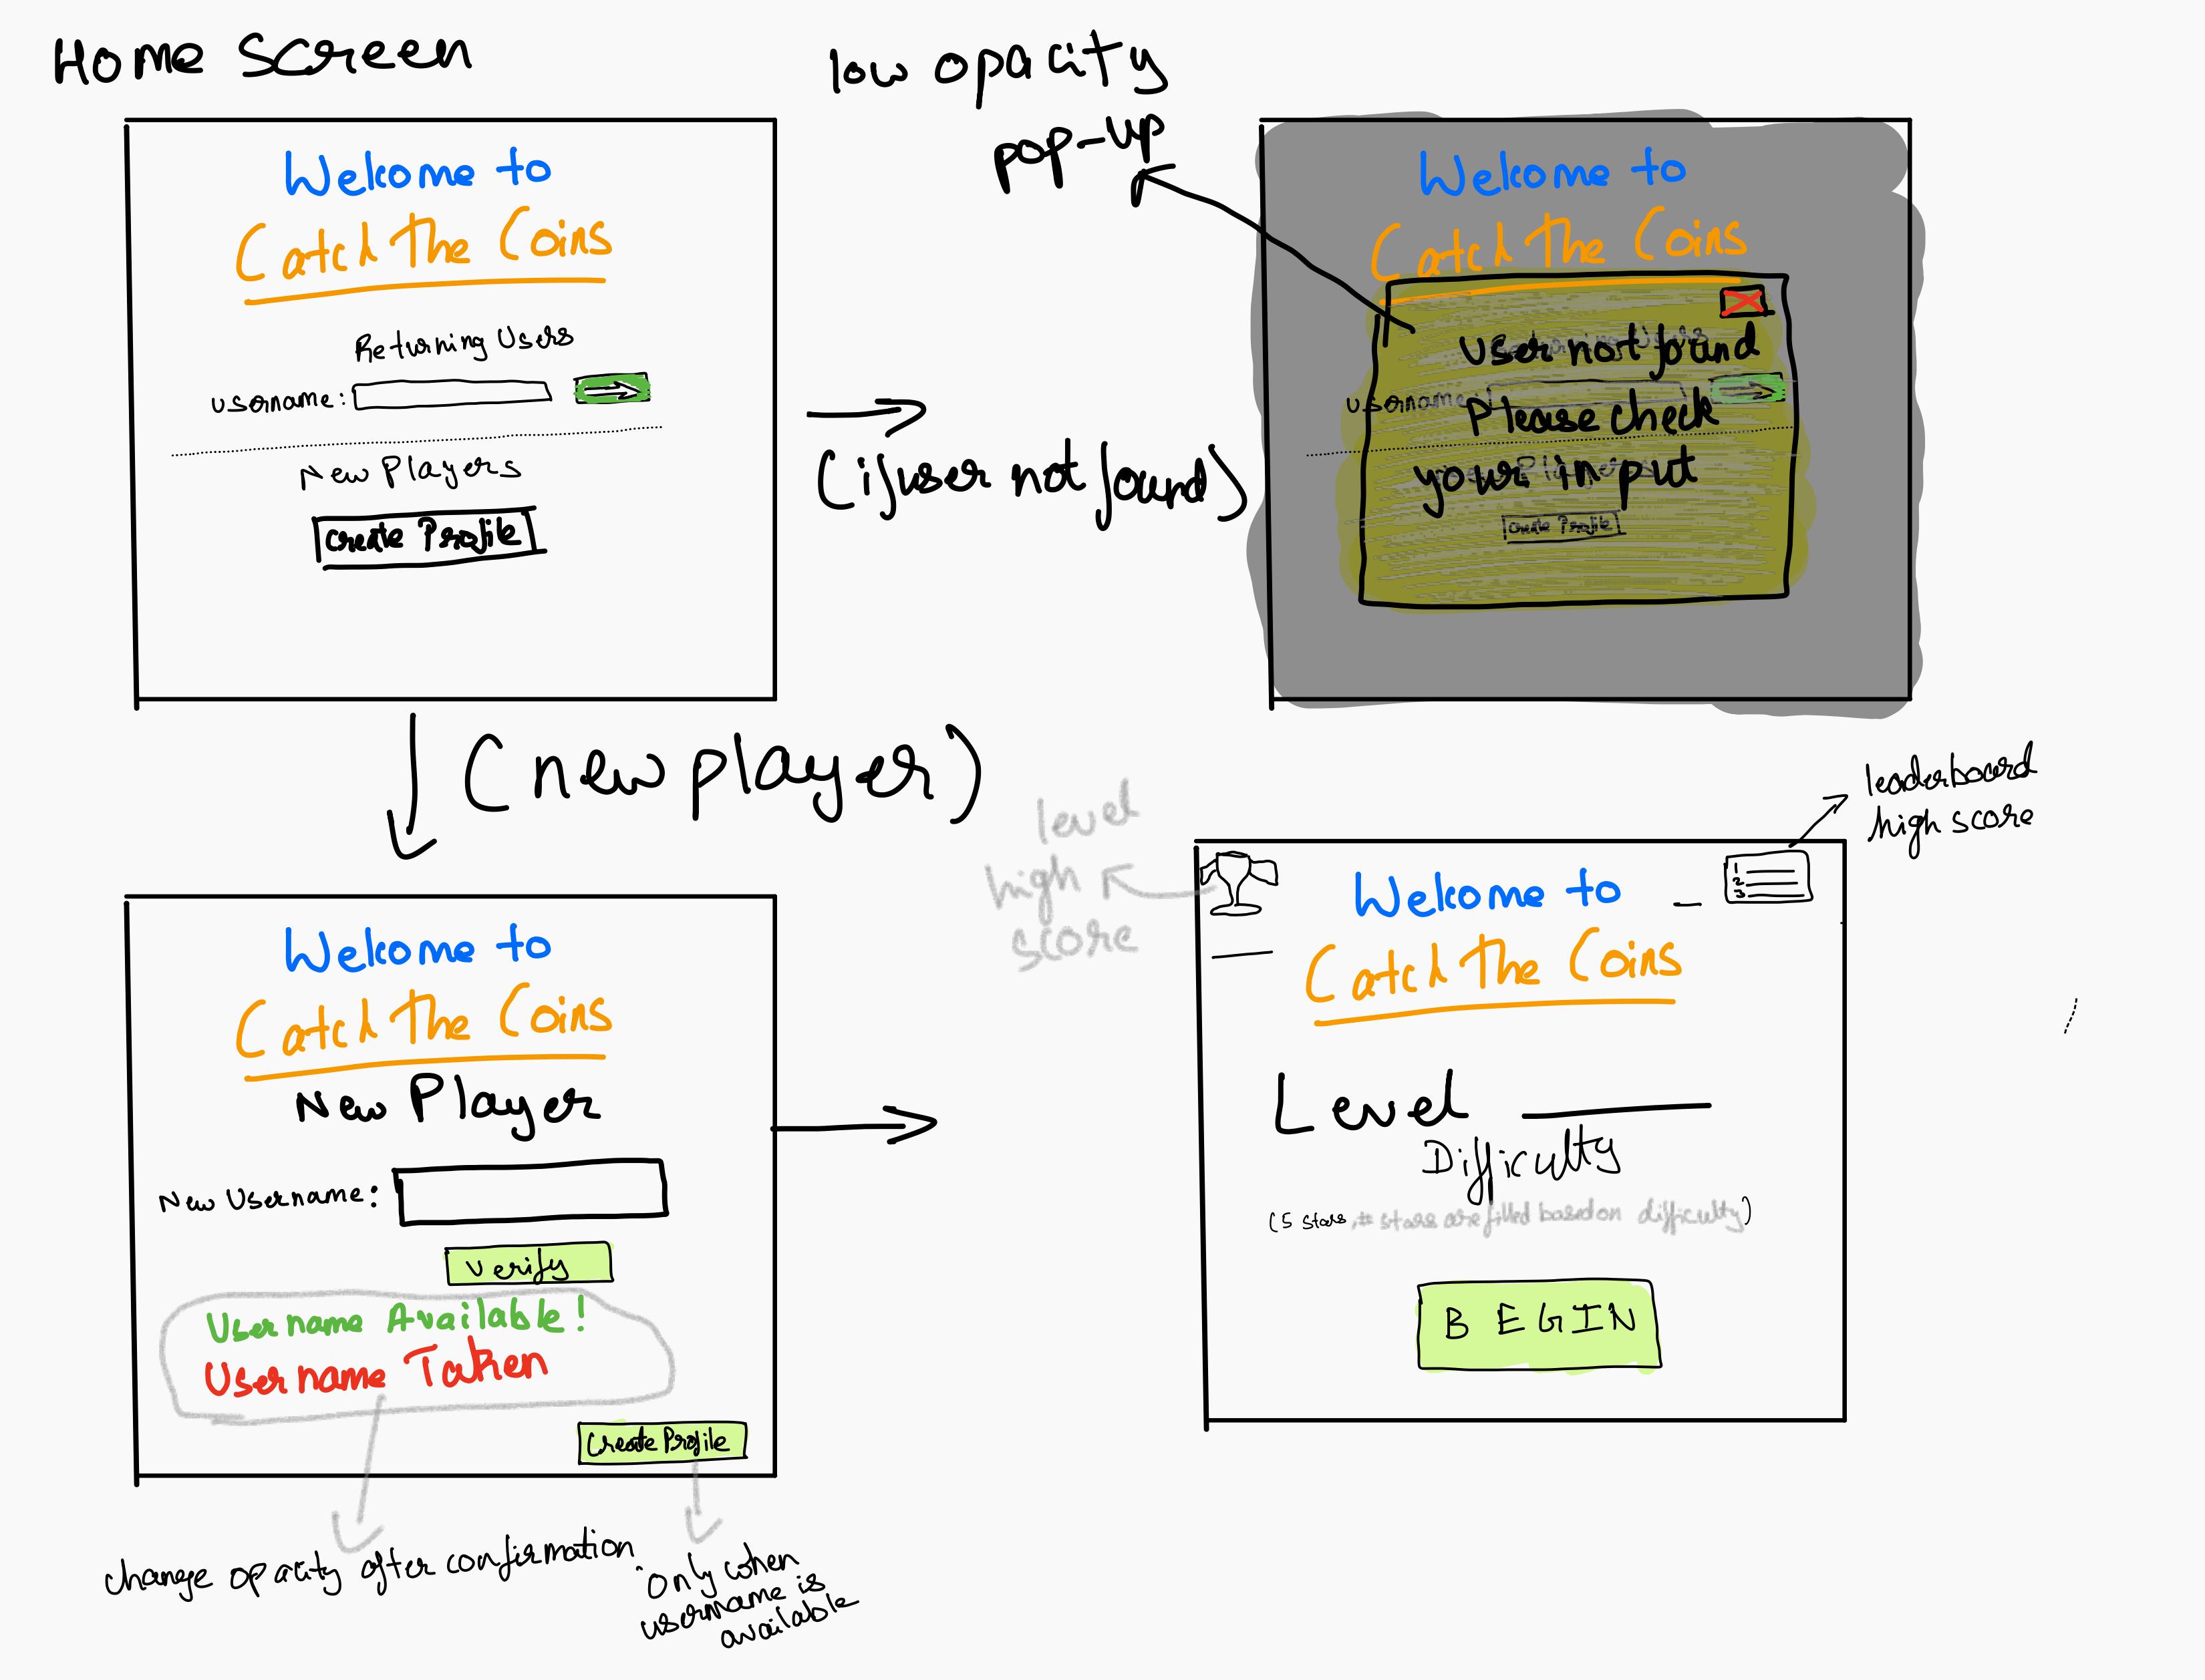 Home Screen
Welcome to
Catch The Coins
Returning Users
username:
New Players
Create Profile
(if user not found)
low opacity
pop-up
Welcome to
Catch The Coins
User not found
username:
Please check
your input
Create Profile
(new player)
Welcome to
Catch The Coins
New Player
New Username:
Verify
Username Available!
Username Taken
Create Profile
change opacity after confirmation
only when
username is
available
level
high
score
leaderboard
high score
1
2
3
Welcome to
Catch The Coins
Level
Difficulty
(5 stars, # stars are filled based on difficulty)
BEGIN